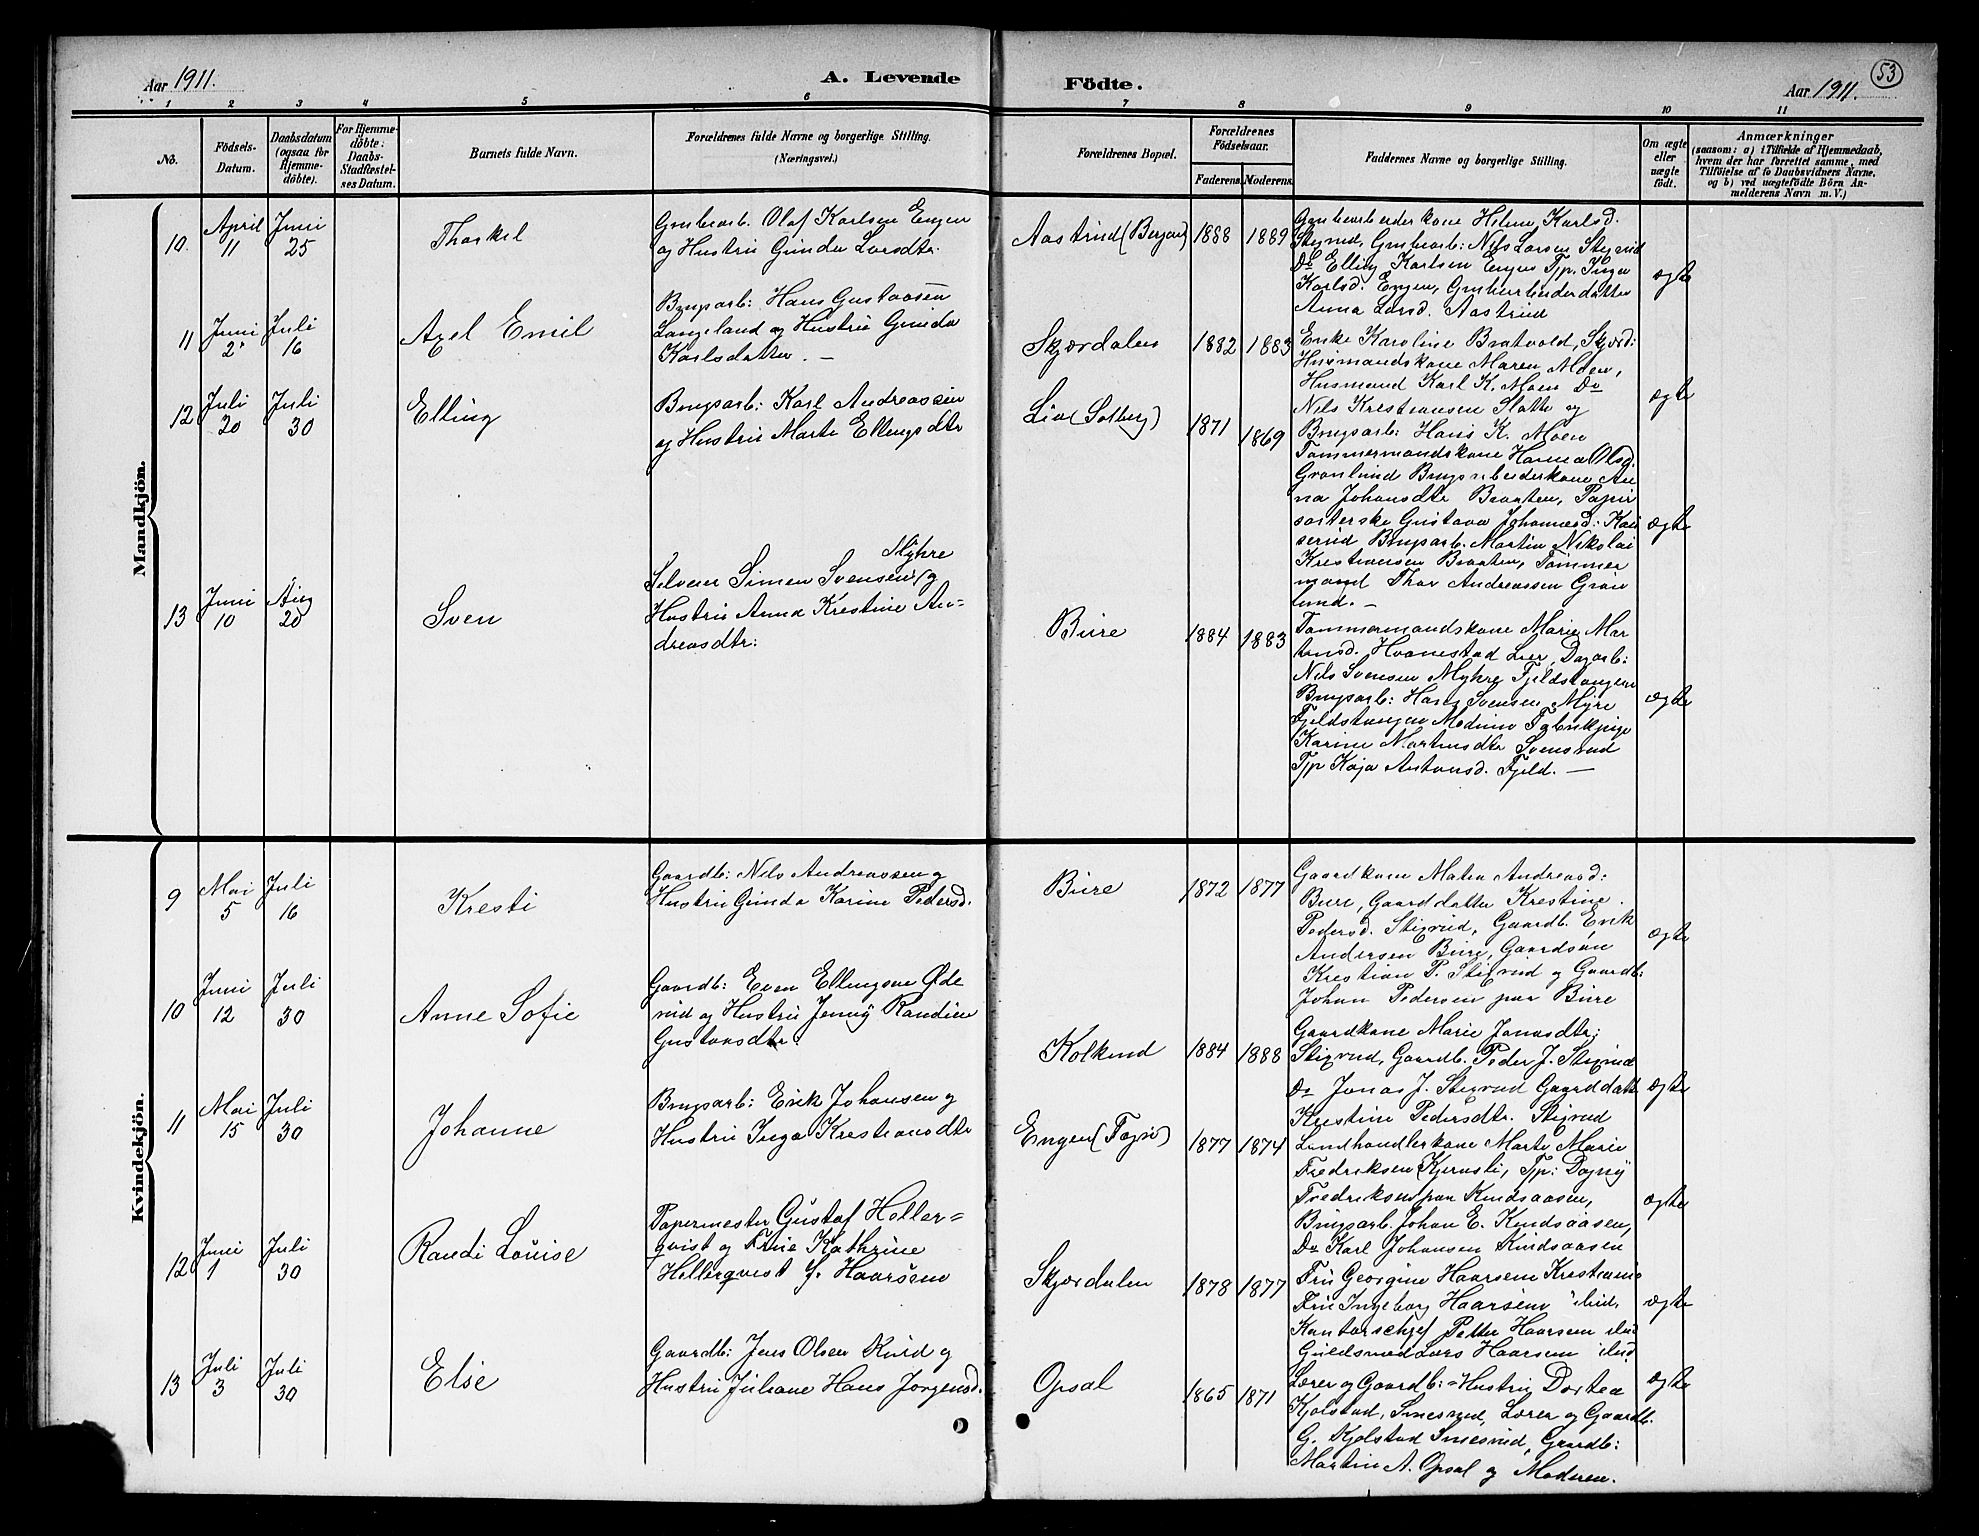 Aar 1911.
A. Levende
Födte.
Aar 1911.
53
1 2 3 4 5 6 7 8 9 10 11
No.
Födsels-
Datum.
Daabsdatum
(ogsaa for
Hjemme-
döbte).
For Hjemme-
döbte:
Daabs-
Stadfæstel-
ses Datum.
Barnets fulde Navn.
Forældrenes fulde Navne og borgerlige Stilling.
(Næringsvei.)
Forældrenes Bopæl.
Forældrenes
Födselsaar.
Faderens. Moderens.
Faddernes Navne og borgerlige Stilling.
Om ægte
eller
uægte
födt.
Anmærkninger
(saasom: a) i Tilfælde af Hjemmedaab,
hvem der har forrettet samme, med
Tilföielse af to Daabsvidners Navne,
og b) ved uægtefödte Börn An-
melderens Navn m. V.)
Mandkjön.
10.
April
11
Juni
25
Thorkel
Grubearb. Olaf Karlsen Engen
og Hustru Gunda Larsdtr.
Aastrud (Berger)
1888
1889
Grubearbeiderkone Helene Karlsd.
Stigrud, Grubearb: Nils Larsen Stigrud
Do Elling Karlsen Engen Tjp. Inga
Karlsd. Engen, Grubearbeiderdatter
Anna Larsd. Aastrud
ægte
11
Juni
2
Juli
16
Axel Emil
Brugsarb: Hans Gustavsen
Langeland og Hustru Gunda
Karlsdatter. —
Skjærdalen
1882
1883
Enke Karoline Bratvold, Skjærd:
Husmandskone Maren Moen,
Husmand Karl K. Moen Do
Nils Kristiansen Slatte og
Brugsarb: Hans K. Moen
ægte
12
Juli
20
Juli
30
Elling
Brugsarb: Karl Andreassen
og Hustru Marte Ellingsdtr
Lia (Solberg)
1871
1869
Tømmermandskone Hanna Olsd.
Grønlund Brugsarbeiderkone An
na Johansdtr Braaten, Papir
sorterske Gustava Johannesd: Kai
serud Brugsarb. Martin Nikolai
Kristiansen Braaten, Tømmer
mand Thor Andreassen Grøn
lund. —
ægte
13
Juni
10
Aug
20
Sven
Myhre
Selveier Simen Svensen og
Hustru Anna Kristine An=
dreasdtr:
Bure
1884
1883
Tømmermandskone Marie Mar
tinsd. Hvanestad Lier, Dagarb:
Nils Svensen Myhre Fjeldstangen
Brugsarb: Hans Svensen Myre
Fjeldstangen Modum Fabrikpige
Karine Martinsdtr Svensrud
Tjp Kaja Antonsd. Fjeld. —
ægte
Kvindekjön.
9
Mai
5
Juli
16
Kresti
Gaardb: Nils Andreassen og
Hustru Gunda Karine Pedersd.
Bure
1872
1877
Gaardkone Maten Andreasd:
Bure, Gaarddatter Kristine
Pedersd. Stigrud, Gaardb. Erik
Andersen Bure, Gaardsøn
Kristian P. Stigrud og Gaardb:
Johan Pedersen paa Bure
ægte
10
Juni
12
Juli
30
Anne Sofie
Gaardb: Even Ellingsen Øde
rud og Hustru Jenny Randine
Gustavsdtr
Kolkind
1884
1888
Gaardkone Marie Jonasdtr:
Stigrud, Gaardb. Peder J. Stigrud
Do Jonas J. Stigrud Gaarddatt
Kristine Pedersdtr. Stigrud
ægte
11
Mai
15
Juli
30
Johanne
Brugsarb: Erik Johansen og
Hustru Inga Kristiansdtr
Engen (Fagst)
1877
1874
Landhandlerkone Marte Marie
Fredriksen Kjernsti, Tjp: Dagny
Fredriksen paa Kindsaasen,
Brugsarb. Johan E. Kindsaasen,
Do Karl Johansen Kindsaasen
ægte
12
Juni
1
Juli
30
Randi Louise
Papermester Gustaf Heller=
qvist og Frue Kathrine
Hellerqvist f. Haarsem
Skjærdalen
1878
1877
Fru Georgine Haarsem Kristiania
Fru Ingeborg Haarsem ibid.
Kontorschef Petter Haarsem ibid
Guldsmed Lars Haarsem ibid.
ægte
13
Juli
3
Juli
30
Else
Gaardb: Jens Olsen Rud og
Hustru Juliane Hans Jørgensd.
Opsal
1865
1871
Lærer og Gaardb:= Hustru Dortea
Kjølstad, Smesrud, Lærer og Gaardb.
G. Kjølstad Smesrud, Gaardb:
Martin A. Opsal og Moderen.
ægte